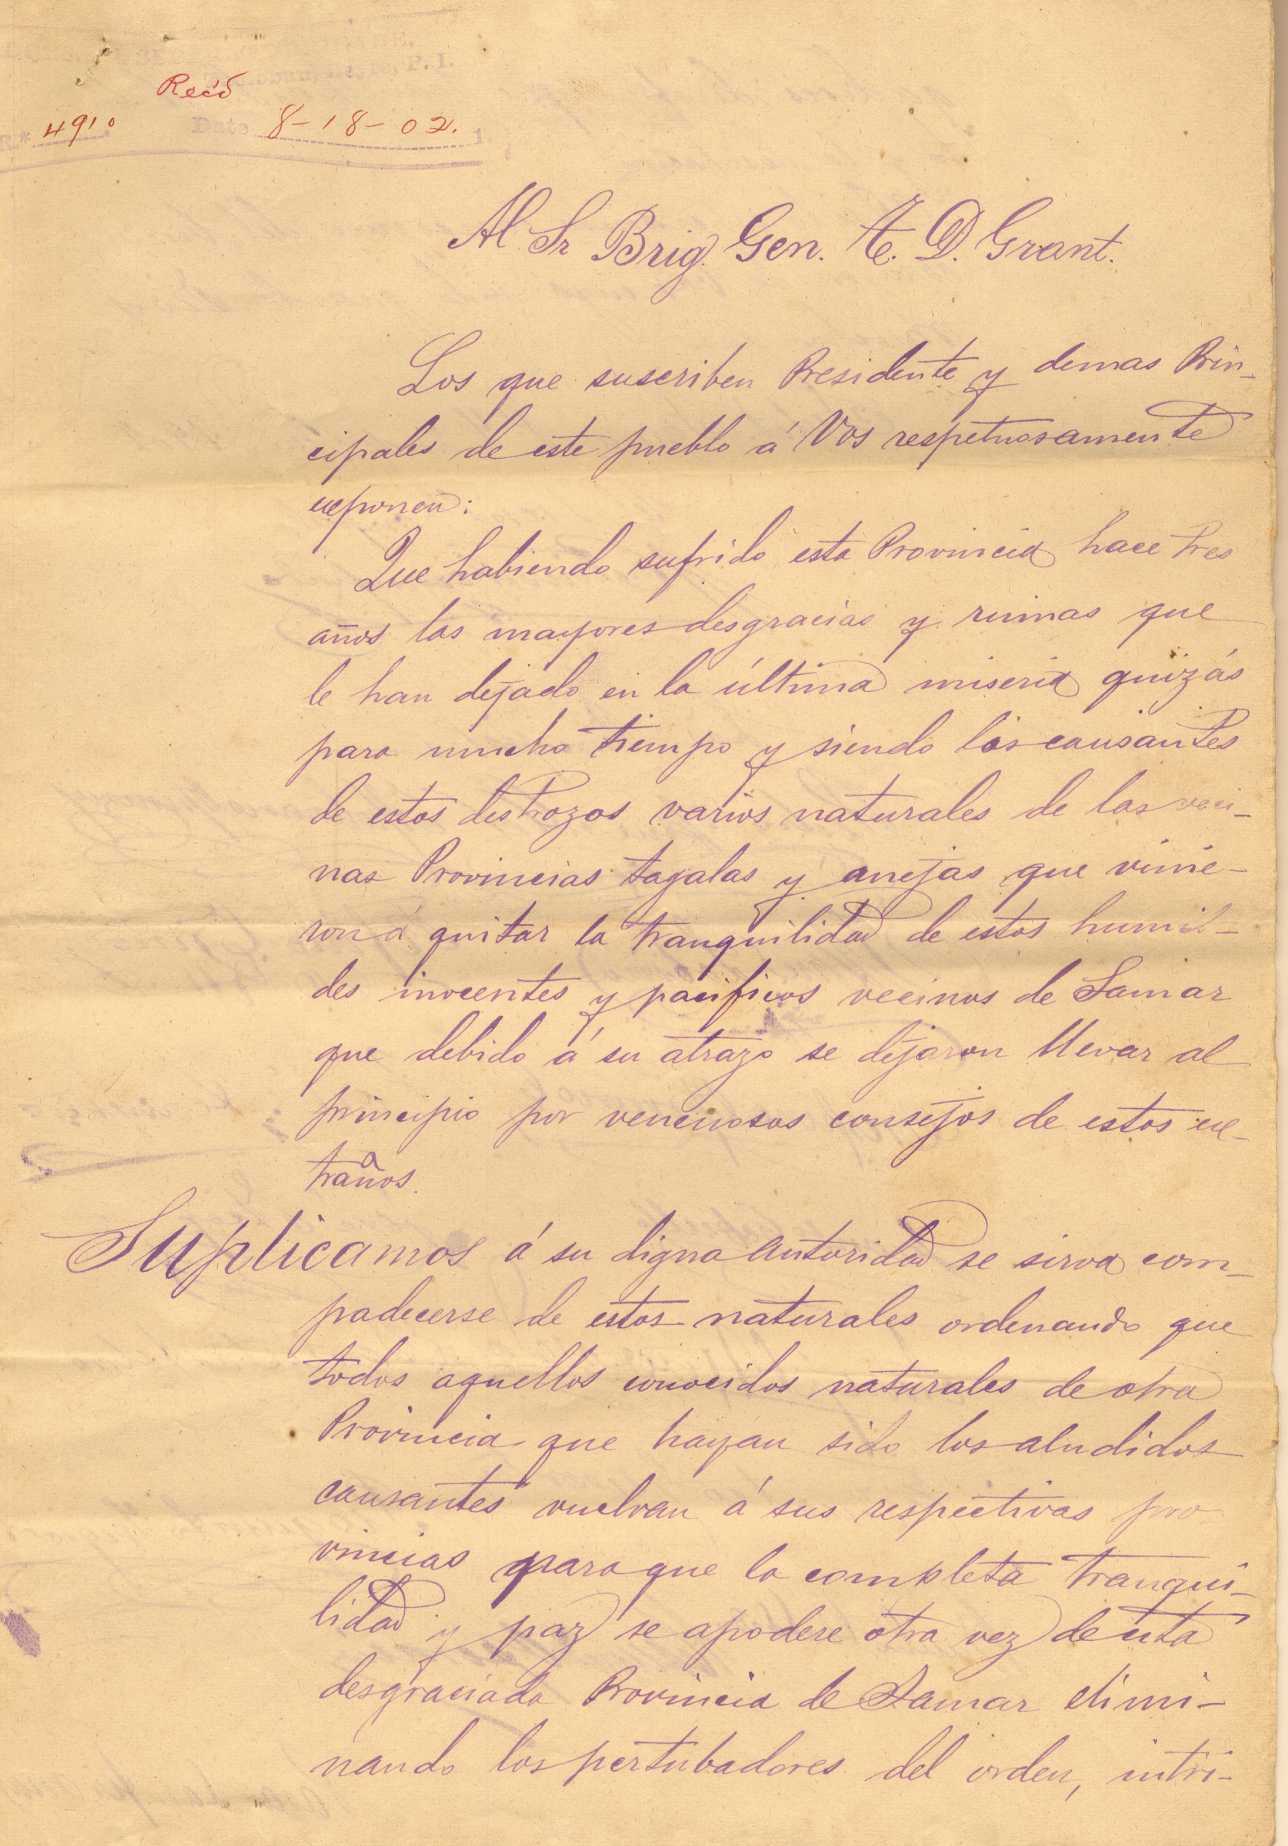 P. I.
Recd
4910
Date 8-18-02. 1
Al Sr Brig. Gen. F. D. Grant.
Los que suscriben Presidente y demas Prin-
cipales de este pueblo á Vos respetuosamente
exponen:
Que habiendo sufrido esta Provincia hace tres
años las mayores desgracias y ruinas que
le han dejado en la última miseria quizás
para mucho tiempo y siendo los causantes
de estos destrozos varios naturales de las veci-
nas Provincias tagalas y anejas que vinie-
ron á quitar la tranquilidad de estos humil-
des inocentes y pacificos vecinos de Samar
que debido á su atrazo se dejaron llevar al
principio por venenosos consejos de estos ex-
traños.
Suplicamos á su digna autoridad se sirva com-
padecerse de estos naturales ordenando que
todos aquellos conocidos naturales de otra
Provincia que hayan sido los aludidos
causantes vuelvan á sus respectivas pro
vincias para que la completa tranqui-
lidad y paz se apodere otra vez de esta
desgraciada Provincia de Samar elimi-
nando los pertubadores del orden, intri-